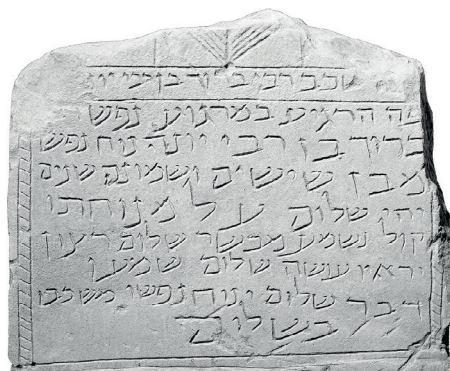 שכב רבי ב וך בן רבי יו
פה הרגיע במרגוע נפש
ברוך בן רבי יונה נוח נפש
מבן ששים ושמונה שנים
יהי שלום על מנוחתו
קול נשמע מבשר שלום רצון
שלום שמען
דבר שלום ינוח נפשו משכבו
בשלום